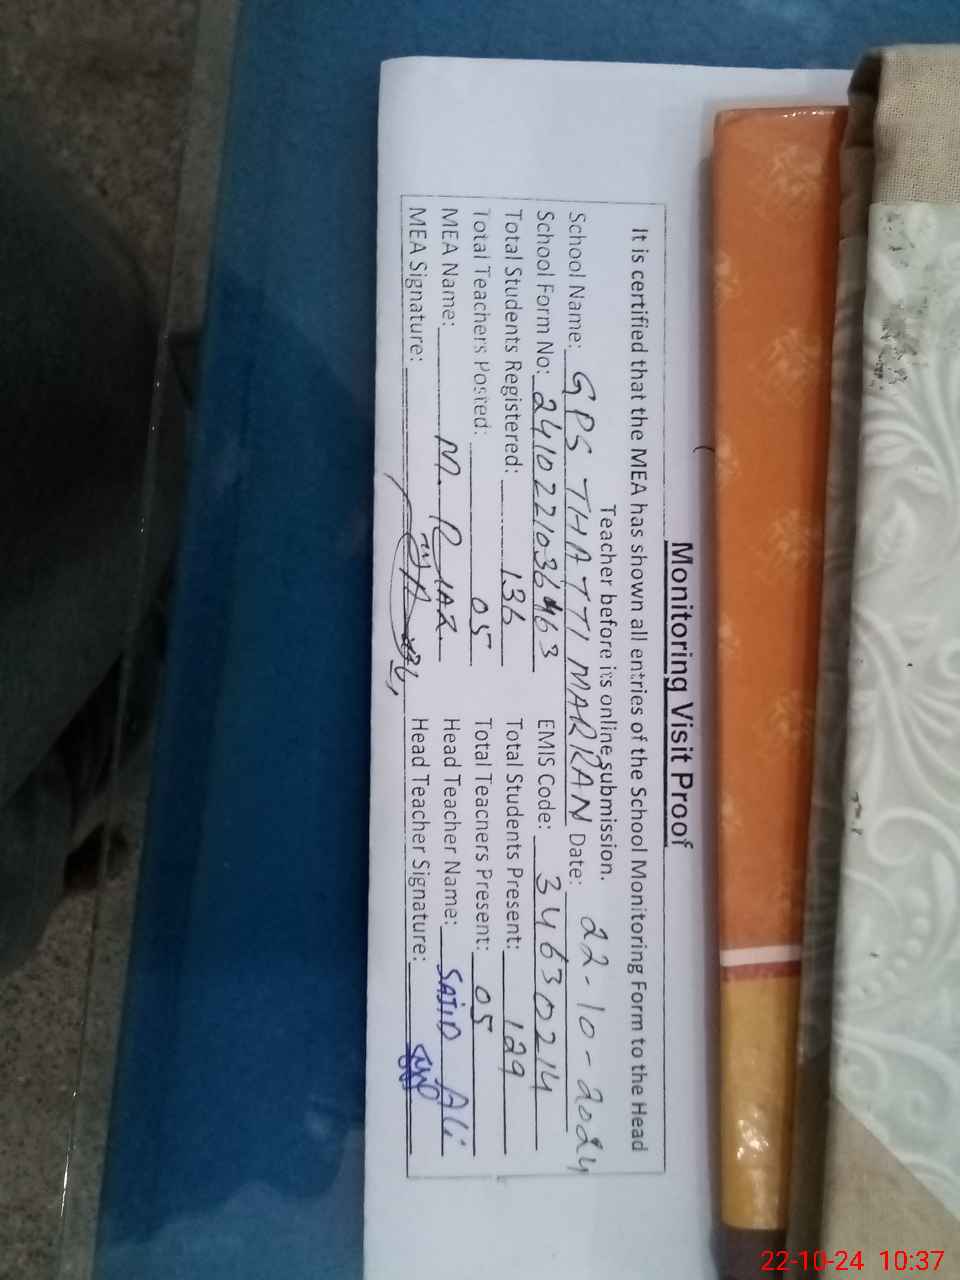 Monitoring Visit Proof
It is certified that the MEA has shown all entries of the School Monitoring Form to the Head
Teacher before its online submission.
School Name: GPS THATTI MARRAN Date: 22-10-2024
School Form No: 2410221036463 EMIS Code: 34630214
Total Students Registered: 136 Total Students Present: 129
Total Teachers Posted: 05 Total Teachers Present: 05
MEA Name: M. RIAZ Head Teacher Name: SAJID Ali
MEA Signature: Head Teacher Signature:
22-10-24 10:37